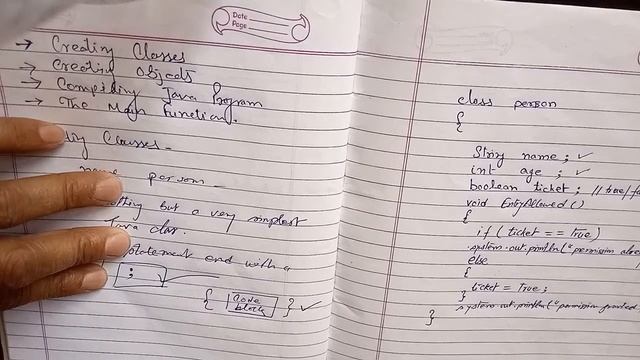 Date
Page
→ Creating Classes
→ Creating Objects
→ Compiling Java Program
→ The Main Function.
Classes-
name person-
but a very simplest
Java class.
statement end with a
;
{ Code block } ✓
class person
{
String name ; ✓
int age ; ✓
boolean ticket ; // true/
void EntryAllowed ()
{
if ( ticket == True)
system.out.println("permission
else
{
ticket = True;
}
system.out.println("permission granted
}